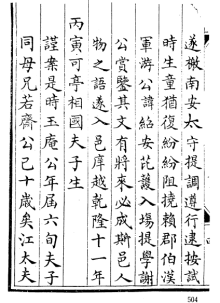 遂檄南安太守提調遵行逮按試
時生童猶復紛紛阻撓賴郡伯漢
軍游公諱紹安芘護入塲提學謝
公賞鑒其文有將來必成斯邑人
物之語遂入邑庠越乾隆十一年
丙寅可亭相國夫子生
謹案是時玉庵公年屆六旬夫子
同母兄若齊公己十歲矣江太夫
504